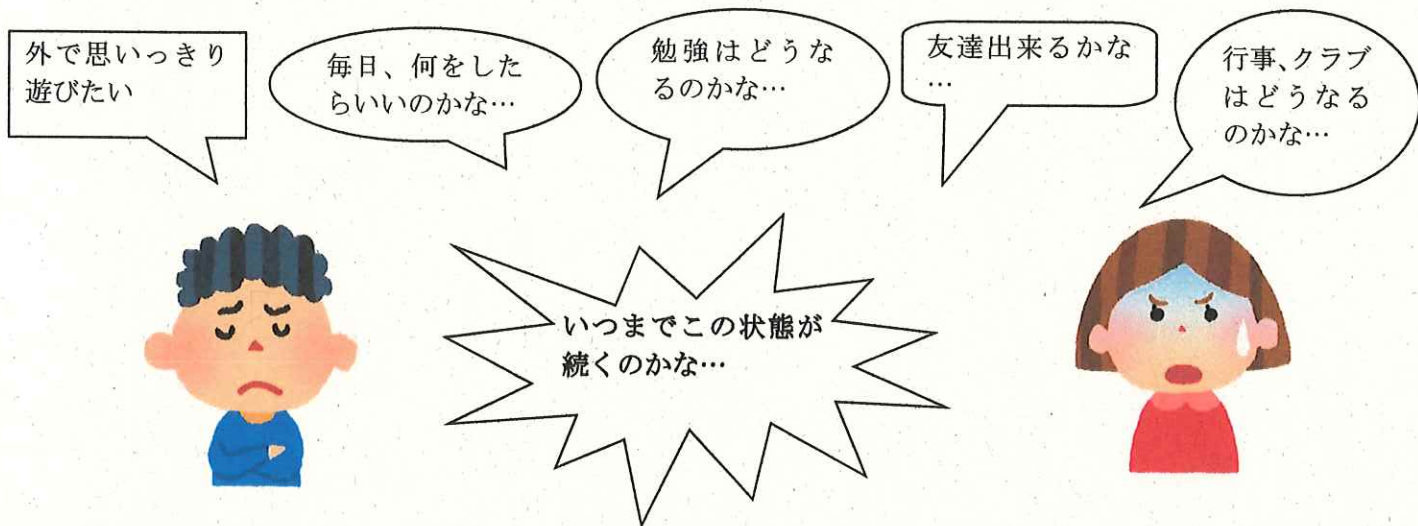 外で思いっきり
遊びたい
毎日、何をした
らいいのかな…
勉強はどうな
るのかな…
友達出来るかな
…
行事、クラブ
はどうなる
のかな…
いつまでこの状態が
続くのかな…